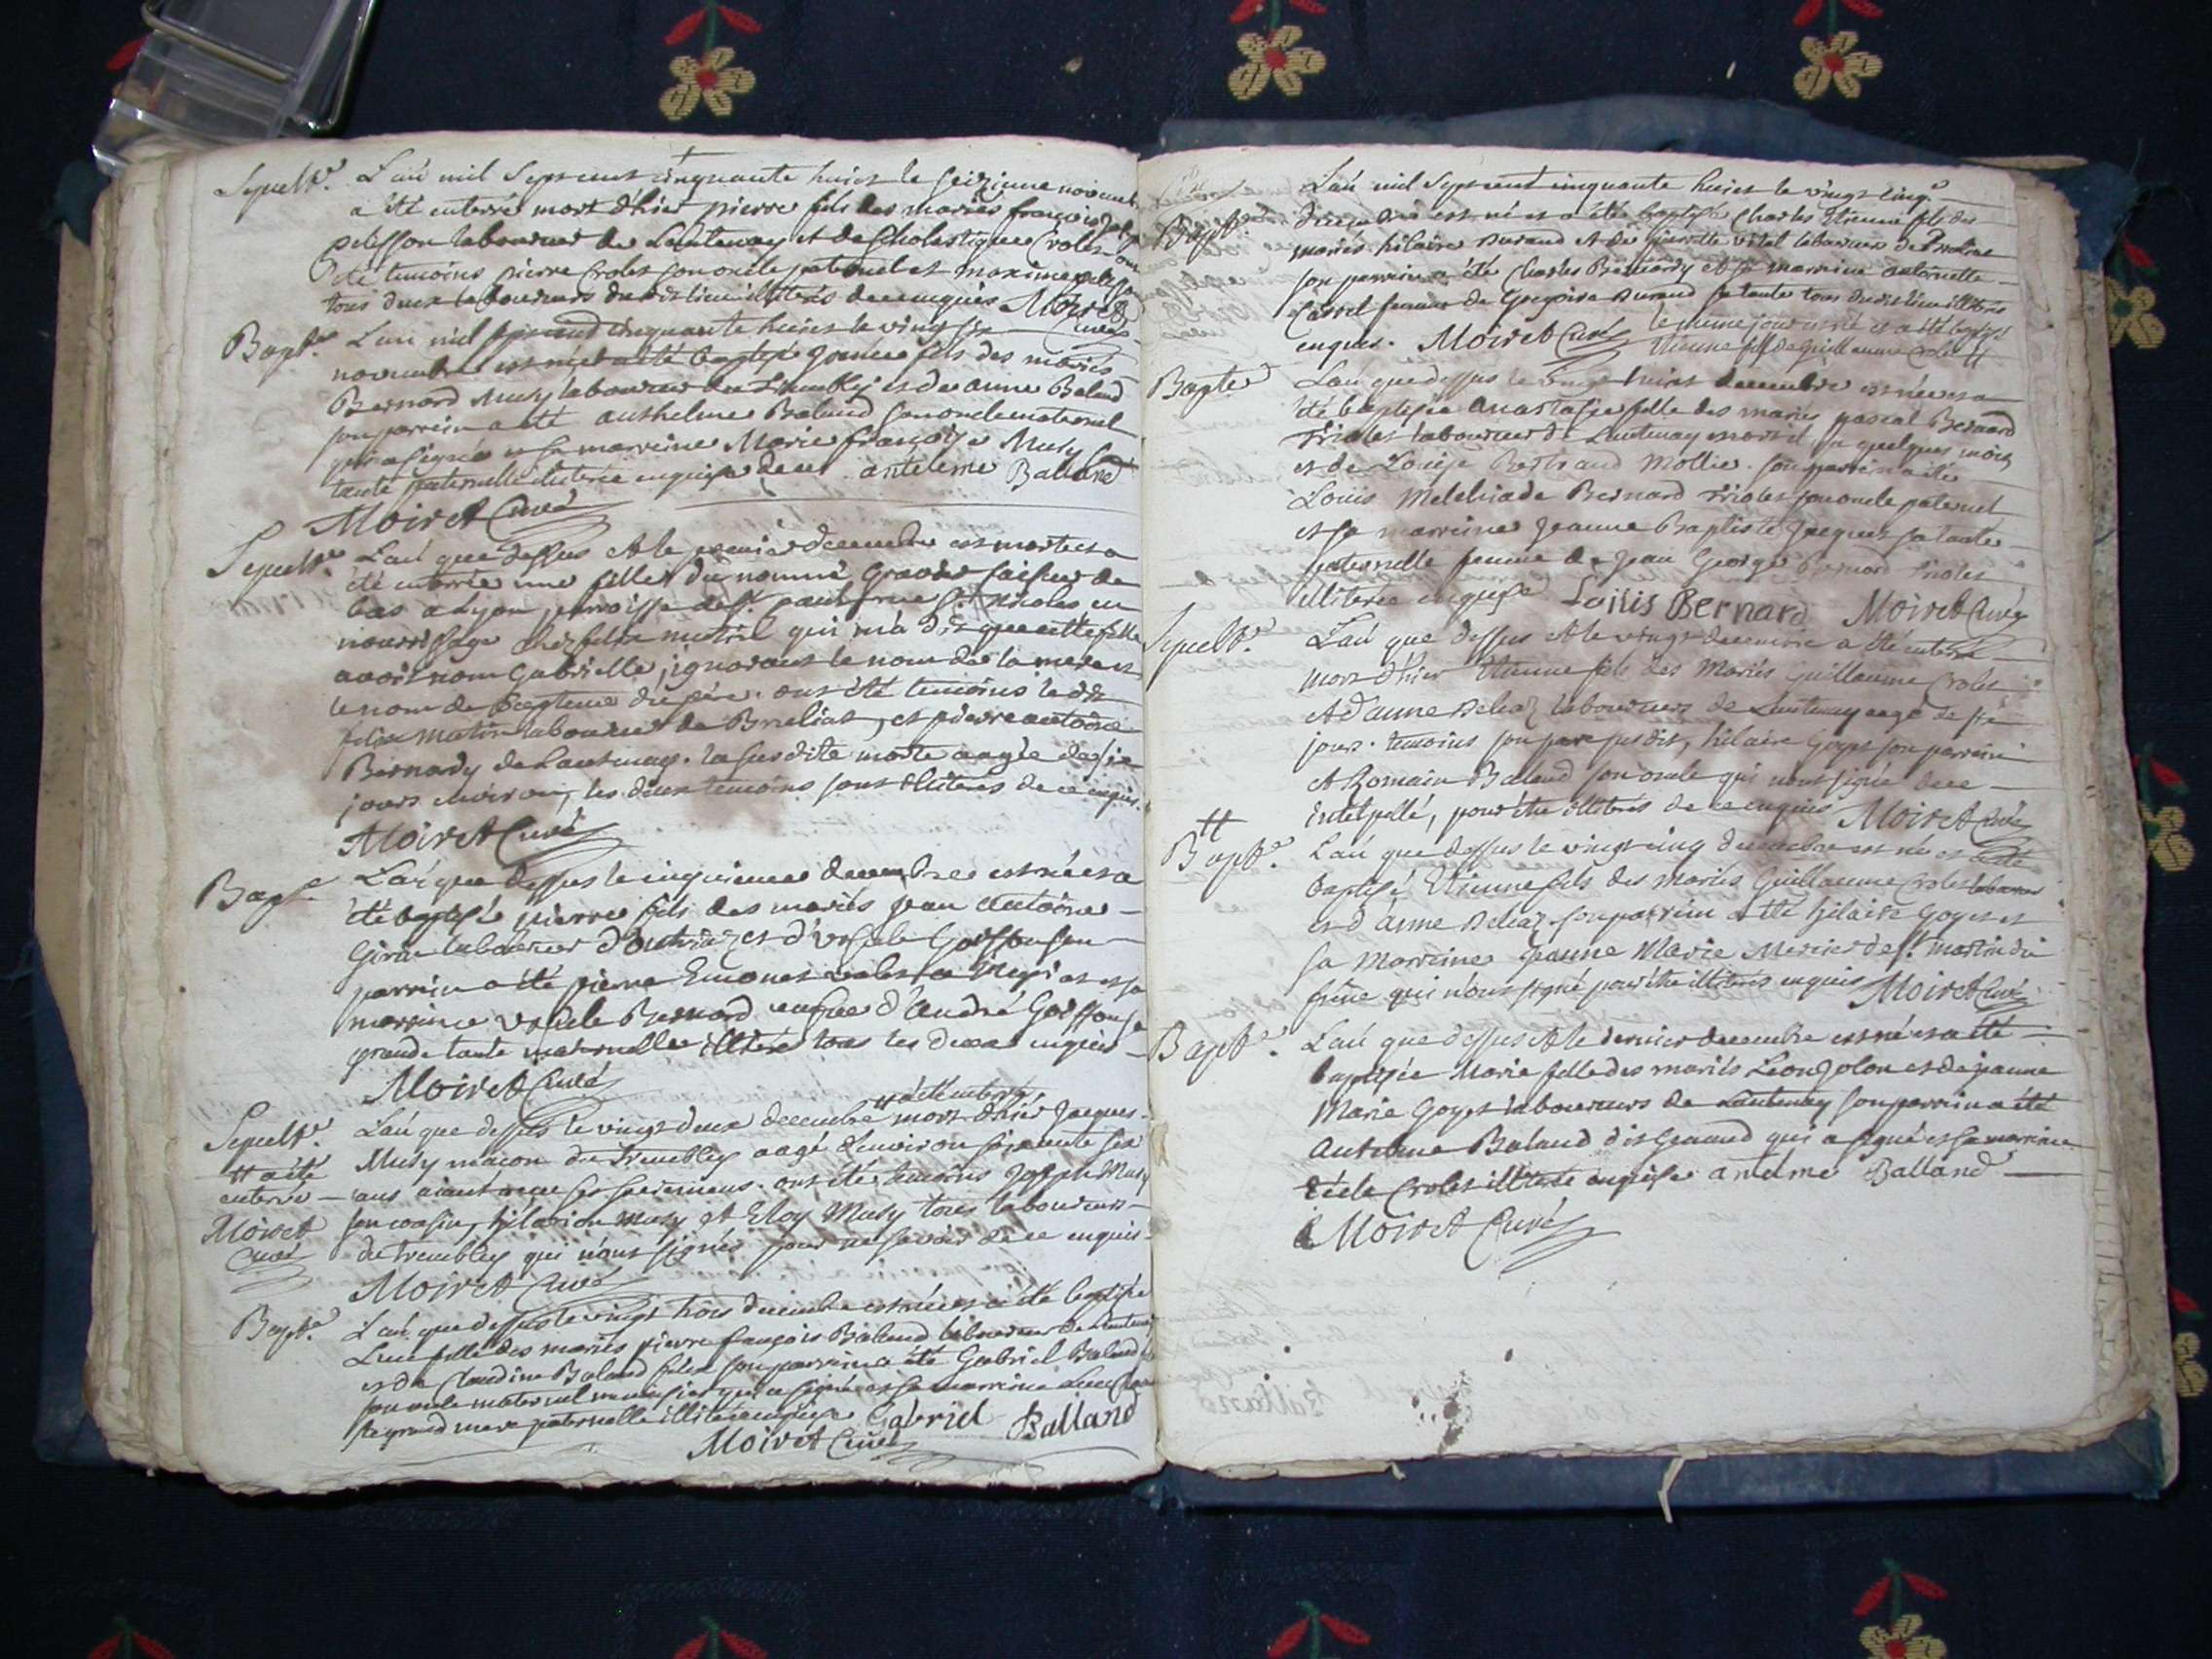 Sepult.e L'an mil Sept cent cinquante huict le seizieme novemb
a été enterré mort d'hier pierre fils des mariés françois
pelisson laboureur de Lantenay et de Scholastique Crolet ont
été temoins pierre Crolet son oncle paternel et maxime pelisson
tous deux laboureurs dudit lieu illiterés de ce enquis Moiret Curé
Bapt.e L'an mil sept cent cinquante huict le vingt six
novembre est né et a été baptisé fils des mariés
Bernard Musy laboureur du Tremblej et de anne Baland
son parrein a été anthelme Baland son oncle maternel
qui a signé et sa marreine Marie françoise Musy sa
tante paternelle illiterée enquise de ce antelme Balland
Moiret Curé
Sepult.e L'an que dessus et le premier decembre est morte et a
été enterrée une fille du nommé faiseur de
bas a Lyon parroisse de St. paul rue St. Nicolas en
nourrissage chez felix mutin qui m'a dit que cette fille
avoit nom Gabrielle, ignorant le nom de la mere et
le nom de Bapteme du père. ont été temoins le dit
felix mutin laboureur de Brenliat, et pierre antoine
Bernardy de Lantenay. la susdite morte aagée de six
jours environ, les deux temoins sont illiterés de ce enquis.
Moiret Curé
Bapt.e L'an que dessus le cinquieme decembre est né et a
été baptisé pierre fils des mariés jean antoine
Girar laboureur d'outriaz et d'Ursule Goiffon son
parrein a été pierre et sa
marreine Ursule Bernard veufve d'André Goiffon sa
grande tante maternelle illiteré tous les deux enquis
Moiret Curé
Sepult.e L'an que dessus le vingt deux decembre # a été enterré mort d'hier Jacques
# a été Musy maçon du Trembley aagé d'environ soixante six
enterré ans aiant reçu ses sacremens. ont été temoins Joseph Musy
Moiret son cousin, hilarion Musy et Eloy Musy tous laboureurs
Curé du Trembley qui n'ont signés pour ne savoir de ce enquis
Moiret Curé
Bapt.e L'an que dessus le vingt trois decembre est née et a été baptisée
Luce fille des mariés pierre françois Baland laboureur de Lantenay
et de Claudine Baland son parrein a été Gabriel Baland
son oncle maternel qui a signé et sa marreine Luce
sa grand mere paternelle illiterée enquise Gabriel Balland
Moiret Curé
L'an mil Sept cent cinquante huict le vingt cinq
Bapt.e decembre est né et a été baptisé Charles Etienne fils des
mariés hilaire Durand et de Pierrette Vital laboureur de
son parrein a été Charles Bernardy et sa marreine antoinette
femme de Gregoire Durand sa tante tous dudit lieu illiterés
enquis. Moiret Curé le même jour est né et a été baptisé
Etienne fils de guillaume Crolet #
Bapt.e L'an que dessus le vingt huict decembre est née et a
été baptisée Anastasie fille des mariés pascal Bernard
laboureur de Lantenay mort il y a quelques mois
et de Louise Bertrand Mollie. son parrein a été
Louis Melchiade Bernard son oncle paternel
et sa marreine Jeanne Baptiste Jacquet sa tante
paternelle femme de Jean George Bernard
illiterée enquise Louis Bernard Moiret Curé
Sepult.e L'an que dessus et le vingt decembre a été enterré
mort d'hier Etienne fils des Mariés Guillaume Crolet
et d'anne Deleaz laboureurs de Lantenay aagé de six
jours. temoins son pere susdit, hilaire Goyet son parrein
et Romain Baland son oncle qui n'ont signé de ce
interpellé, pour être illiterés de ce enquis Moiret Curé
#
Bapt.e L'an que dessus le vingt cinq decembre est né et a été
baptisé Etienne fils des Mariés Guillaume Crolet laboureur
et d'anne Deleaz. son parrein a été hilaire Goyet et
sa Marreine Jeanne Marie Mercier de St. martin du
frêne qui n'ont signé pour être illiterés enquis Moiret Curé
Bapt.e L'an que dessus et le dernier decembre est née et a été
baptisée Marie fille des mariés Leon Jolon et de jeanne
Marie Goyet laboureurs de Lantenay son parrein a été
Antelme Baland dit Geaund qui a signé et sa marreine
Crolet illiterée enquise antelme Balland
Moiret Curé